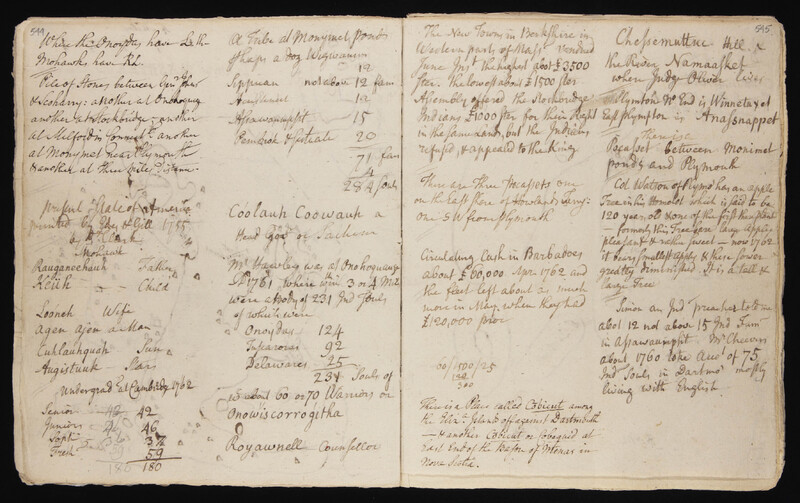 544
Where the Onoydas have L the
Mohawks have R.
Pile of Stones between
& Scohary: another at Onohoquag
another at Stockbridge: another
at Milford in Connectt: another
at Monymet near Plymouth
& another at three miles Distance
present State of America
printed by Edes & Gill 1755
by Dr Clark
Mohawk
Raugenechauh Father
Keiuh Child
Looneh Wife
agen ajen a Man
Cuhlauhquuh Sun
Augistuuk Stars
Undergrad. at Cambridge 1762
Senior 42
Juniors 46
Soph 37
Fresh 59
180 180
a Tribe at Monymet Ponds
perhaps a doz Wigwams
12
Sippuan not above 12 fam
12
Assawaumpsit 15
20
71 fam
4
284 Souls
Cóolauh Coowauh a
Head God or Sachem
Mr Hawley was at Onohoquage
1761, where within 3 or 4 Miles
were a body of 231 Ind Souls
of which were
Onoydas 124
Tuscaroras 92
Delawares 25
231 Souls of
wh about 60 or 70 Warriors on
Onowiscorrogitha
Royawnell Counsellor
The New Towns in Berkshire in
Western parts of Mass. vendued
June Inst the highest abot £3500
ster. the lowest about £1500 ster
Assembly offered the Stockbridge
Indians £1000 ster for their Right
in the same land, but the Indians
refused, & appealed to the King
There are Three Pocassets one
on the East shore of Howlands ferry:
one SW from Plymouth
Circulating Cash in Barbadoes
about £60,000 Apr. 1762 and
the fleet left about as much
more in May, when they had
£120,000 prov
60/1500/25
300
There is a Place called Cobicut among
the Eliz. Islands off against Dartmouth
— & another Cobicut or Cobequid at
East End of the Bason of Menas in
Nova Scotia.
545
Chessemuttuc Hill &
the River Namassket
where Judge Oliver lives
Plympton W End is Winnetuxet
East Plympton is Anassnappet
there is a
Pocasset between Monimet
ponds and Plymouth
Col. Watson of Plymo has an apple
Tree in his Homelot which is said to be
120 year old & one of the first then planted
— formerly this Tree bare large apples
pleasant & rather sweet — now 1762
it bears smallest apples & these sower
greatly diminished. It is a tall &
large Tree
Simon an Ind preacher told me
abot 12 not above 15 Ind Fam
in Assawaumpsit Mr Cheever
about 1760 took Acco of 75
Ind Souls in Dartmo mostly
living with English